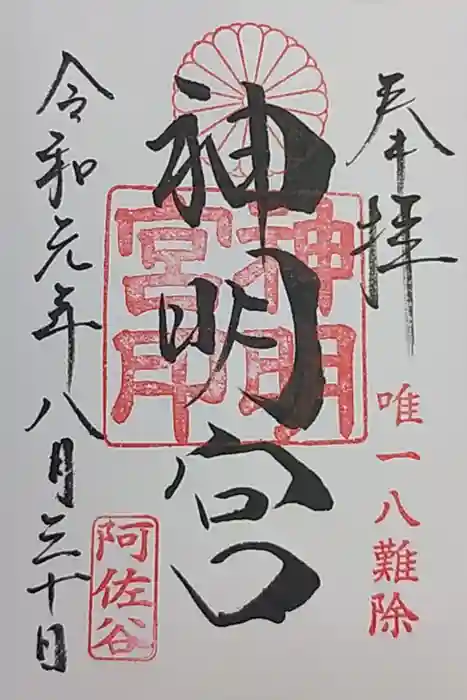 奉拝
唯一八難除
神明宮
神明宮印
令和元年八月三十日
阿佐谷